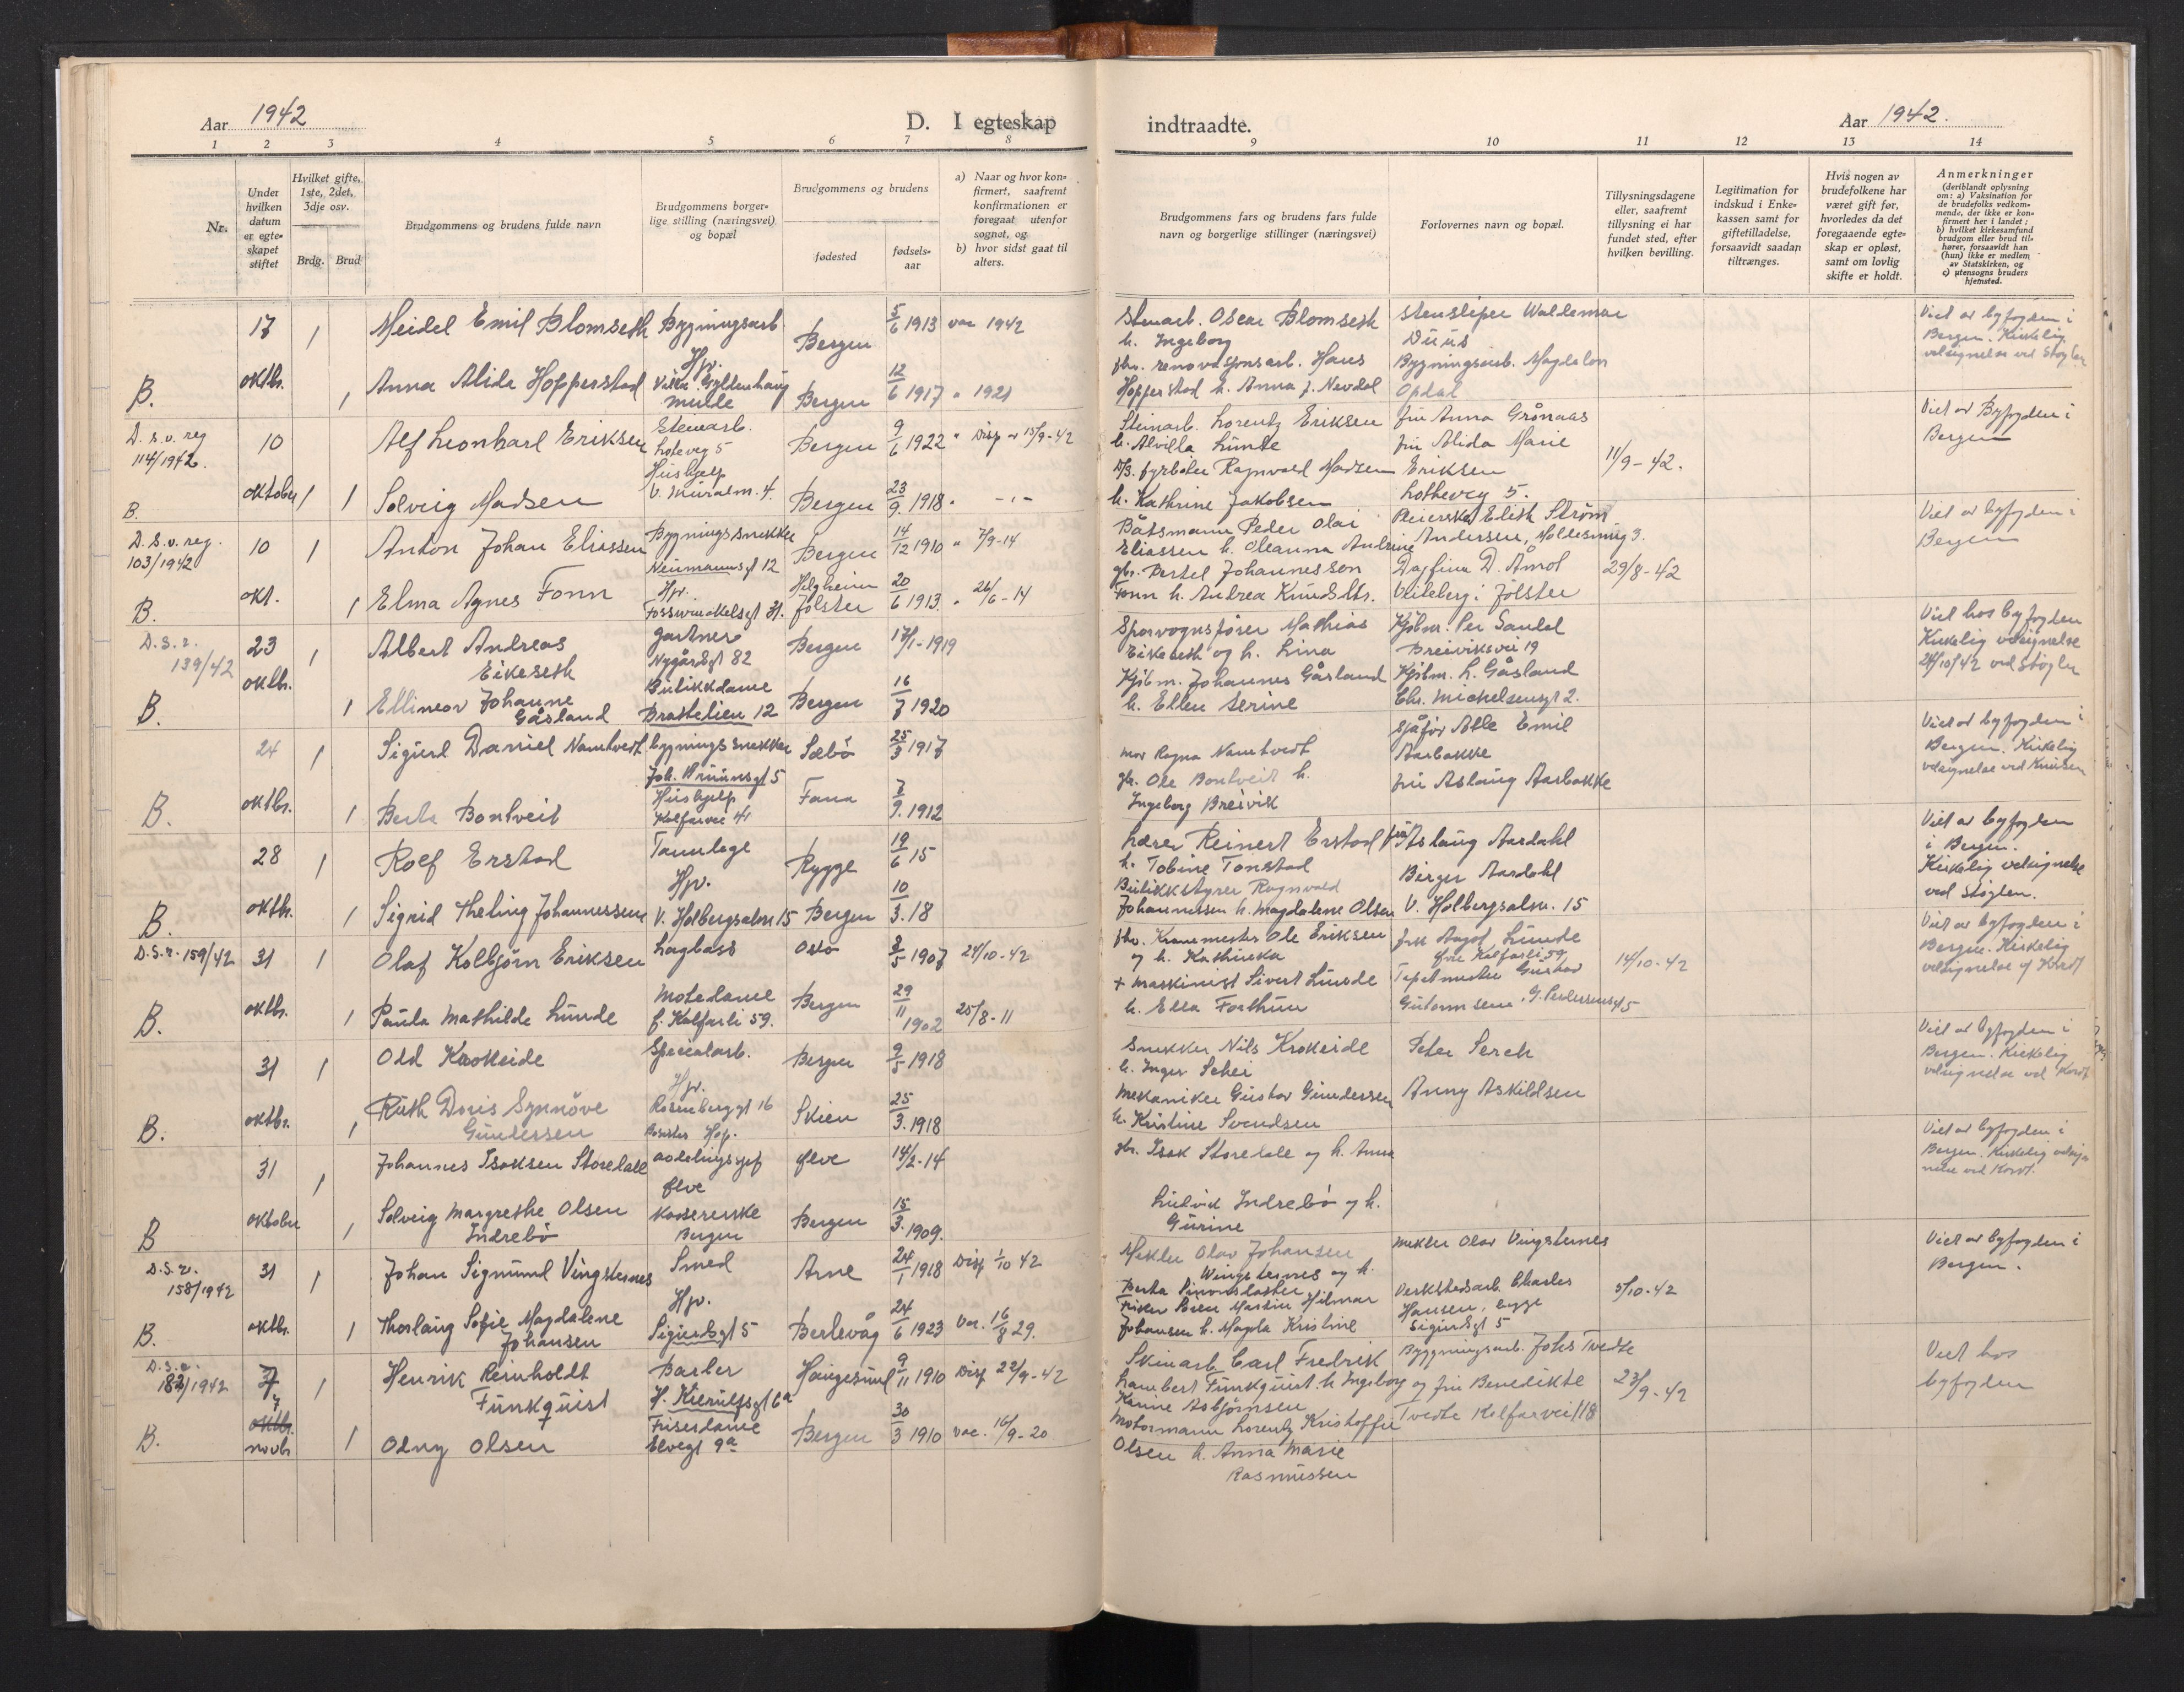 Aar 1942
D. I egteskap
1 2 3 4 5 6 7 8
Nr.
Under hvilken datum er egteskapet stiftet
Hvilket gifte, 1ste, 2det, 3dje osv.
Brdg. Brud
Brudgommens og brudens fulde navn
Brudgommens borgerlige stilling (næringsvei) og bopæl
Brudgommens og brudens
fødested
fødselsaar
a) Naar og hvor konfirmert, saafremt konfirmationen er foregaat utenfor sognet, og
b) hvor sidst gaat til alters.
17 1 Meidel Emil Blomseth Bygningsarb. Bergen 5/6 1913 vac 1942
Hjv.
B. oktbr. 1 Anna Alida Hopperstad Villa Gyldenhaug Bergen 12/6 1917 " 1921
D.s.v. reg 114/1942. 10 1 Alf Leonhard Eriksen Stenarb. Loteveg 5 Bergen 9/6 1922 " Disp. 15/9-42
Hushjelp
B. oktober 1 Solveig Madsen V. Muralm. 4. Bergen 23/9. 1918 "
D.S.v. reg. 103/1942 10 1 Anton Johan Eliassen Bygningssnekker Neumannsgt 12 Bergen 14/12 1910 " 7/9-14
B. okt. 1 Elma Agnes Fonn Hjv. Fosswinckelsgt 31. Helgheim Jølster 20/6 1913. " 26/6-14
D.S.r. 139/42 23 1 Albert Andreas Eikeseth gartner Nygårdsgt 82 Bergen 17/1-1919
B. oktbr. 1 Ellinor Johanne Gåsland Butikkdame Brattelien 12 Bergen 16/7 1920
24 1 Sigurd Daniel Namtvedt bygningssnekker Joh. Bruunsgt 5 Sæbö 25/3 1917
B. oktbr. 1 Berta Bontveit Hushjelp Kalfarvei 41 Fana 7/9. 1912
28 1 Rolf Erstad Tannlege Rygge 19/6 15
Hjv.
B. oktbr. 1 Sigrid Theling Johannessen V. Holbergsalm 15 Bergen 10/3. 18
D.S.r. 159/42 31 1 Olaf Kolbjörn Eriksen Lagbass Oslo 3/5 1907 24/10-42
B. oktbr. 1 Paula Mathilde Lunde Motedame f. Kalfarli 59. Bergen 29/11 1902 25/8-11
31 1 Odd Krokeide Specialarb. Bergen 9/5 1918
B. oktbr. 1 Ruth Doris Synnöve Gundersen Hjv. Rosenberggt 16 Skien 25/3. 1918
31 1 Johannes Isaksen Storedale avdelingssjef Ølve 14/2-14
Ølve
B oktober 1 Solveig Margrethe Olsen Indrebö Kassererske Bergen Bergen 15/3. 1909.
D.S.r. 158/1942 31 1 Johan Sigmund Vingsternes Smed Arne 24/1 1918 Disp 1/10 42
B. oktbr. 1 Thorlaug Sofie Magdalene Johansen Hjv. Sigurdsgt 5 Berlevåg 24/6 1923 Vac. 16/8 29.
D.S.r. 182/1942 7 1 Henrik Reinholdt Funkquist Barber H. Kierulfsgt 6a Haugesund 9/11 1910 Disp 22/9-42
B. oktbr. novbr 1 Odny Olsen Friserdame Elvegt 9a Bergen 30/3 1910 vac. 16/9-20
indtraadte.
Aar 1942.
9 10 11 12 13 14
Brudgommens fars og brudens fars fulde navn og borgerlige stillinger (næringsvei)
Forlovernes navn og bopæl.
Tillysningsdagene eller, saafremt tillysning ei har fundet sted, efter hvilken bevilling.
Legitimation for indskud i Enkekassen samt for giftetilladelse, forsaavidt saadan tiltrænges.
Hvis nogen av brudefolkene har været gift før, hvorledes da det foregaaende egteskap er opløst, samt om lovlig skifte er holdt.
Anmerkninger
(deriblandt oplysning om: a) Vaksination for de brudefolks vedkommende, der ikke er konfirmert her i landet; b) hvilket kirkesamfund brudgom eller brud tilhører, forsaavidt han (hun) ikke er medlem av Statskirken, og c) utensogns bruders hjemsted.
Stenarb. Oscar Blomseth h. Ingeborg Stensliper Waldemar Duus Viet av byfogden i Bergen. Kirkelig velsignelse ved Støylen
fhv. renovasjonsarb. Hans Hopperstad h. Anna f. Nevdal Bygningsarb. Magdalon Opdal
Steinarb. Lorentz Eriksen h. Alvilda Lunde fru Anna Grönaas Viet av Byfogden i Bergen
fyrböter Ragnvald Madsen h. Kathrine Jakobsen fru Alida Marie Eriksen Lotheveg 5. 11/9-42.
Båtsmann Peder Olai Eliassen h. Oleanna Andrine Pleierske Edith Ström Andersen, Moldesmug 3. Viet av byfogden i Bergen
gbr. Bertel Johannesson Fonn h. Andrea Knudsdtr. Dagfinn D. Åmot Viteberg i Jölster 29/8-42
Sporvognsfører Mathias Eikeseth og h. Lina Kjöbm. Per Sandal Breiviksvei 19 Viet hos byfogden Kirkelig velsignelse 24/10/42 ved Støylen
Kjöbm. Johannes Gåsland h. Ellen Serine Kjöbm. L. Gåsland Chr. Michelsensgt 2.
mor Ragna Namtvedt Sjåför Atle Emil Aarbakke Viet av byfogden i Bergen. Kirkelig velsignelse ved Knudsen
gbr. Ole Bontveit h. Ingeborg Breivik fru Aslaug Aarbakke
Lærer Reinert Erstad h. Tobine Tonstad fru Aslaug Aardahl Viet av byfogden i Bergen. Kirkelig velsignelse ved Støylen.
Butikkstyrer Ragnvald Johannessen h. Magdalene Olsen Birger Aardahl V. Holbergsalm. 15
fhv. Kranmester Ole Eriksen og h. Kathinka frk Aagot Lunde Øvre Kalfarli 59 Viet av byfogden i Bergen. Kirkelig velsignelse af Kordt
+ maskinist Sivert Lunde h. Ella Forthun Tapetmester Gustav Guttormsen, G. Pedersensgt 5 14/10-42
Snekker Nils Krokeide h. Inger Schei Peter Serch Viet av byfogden i Bergen. Kirkelig velsignelse ved Kordt
Mekaniker Gustav Gundersen h. Kristine Svendsen Anny Askildsen
gbr. Isak Storedale og h. Anna Viet av byfogden i Bergen. Kirkelig velsignelse ved Kordt.
Ludvik Indrebö og h. Gurine
Mekler Olav Johansen Wingsternes og h. Berta mekler Olav Vingsternes Viet av byfogden i Bergen.
Fisker Peder Martin Hilmar Johansen h. Magda Kristine Verkstedsarb. Charles Hansen, begge Sigurdsgt 5 5/10-42
Skinarb Carl Fredrik Lambert Funkquist h. Ingeborg Karine Asbjörnsen Byggningsarb. Johs Tvedte og fru Benedikte Tvedte Kalfarvei 118 23/9-42 Viet hos byfogden
Motormann Lorentz Kristoffer Olsen h. Anna Marie Rasmussen